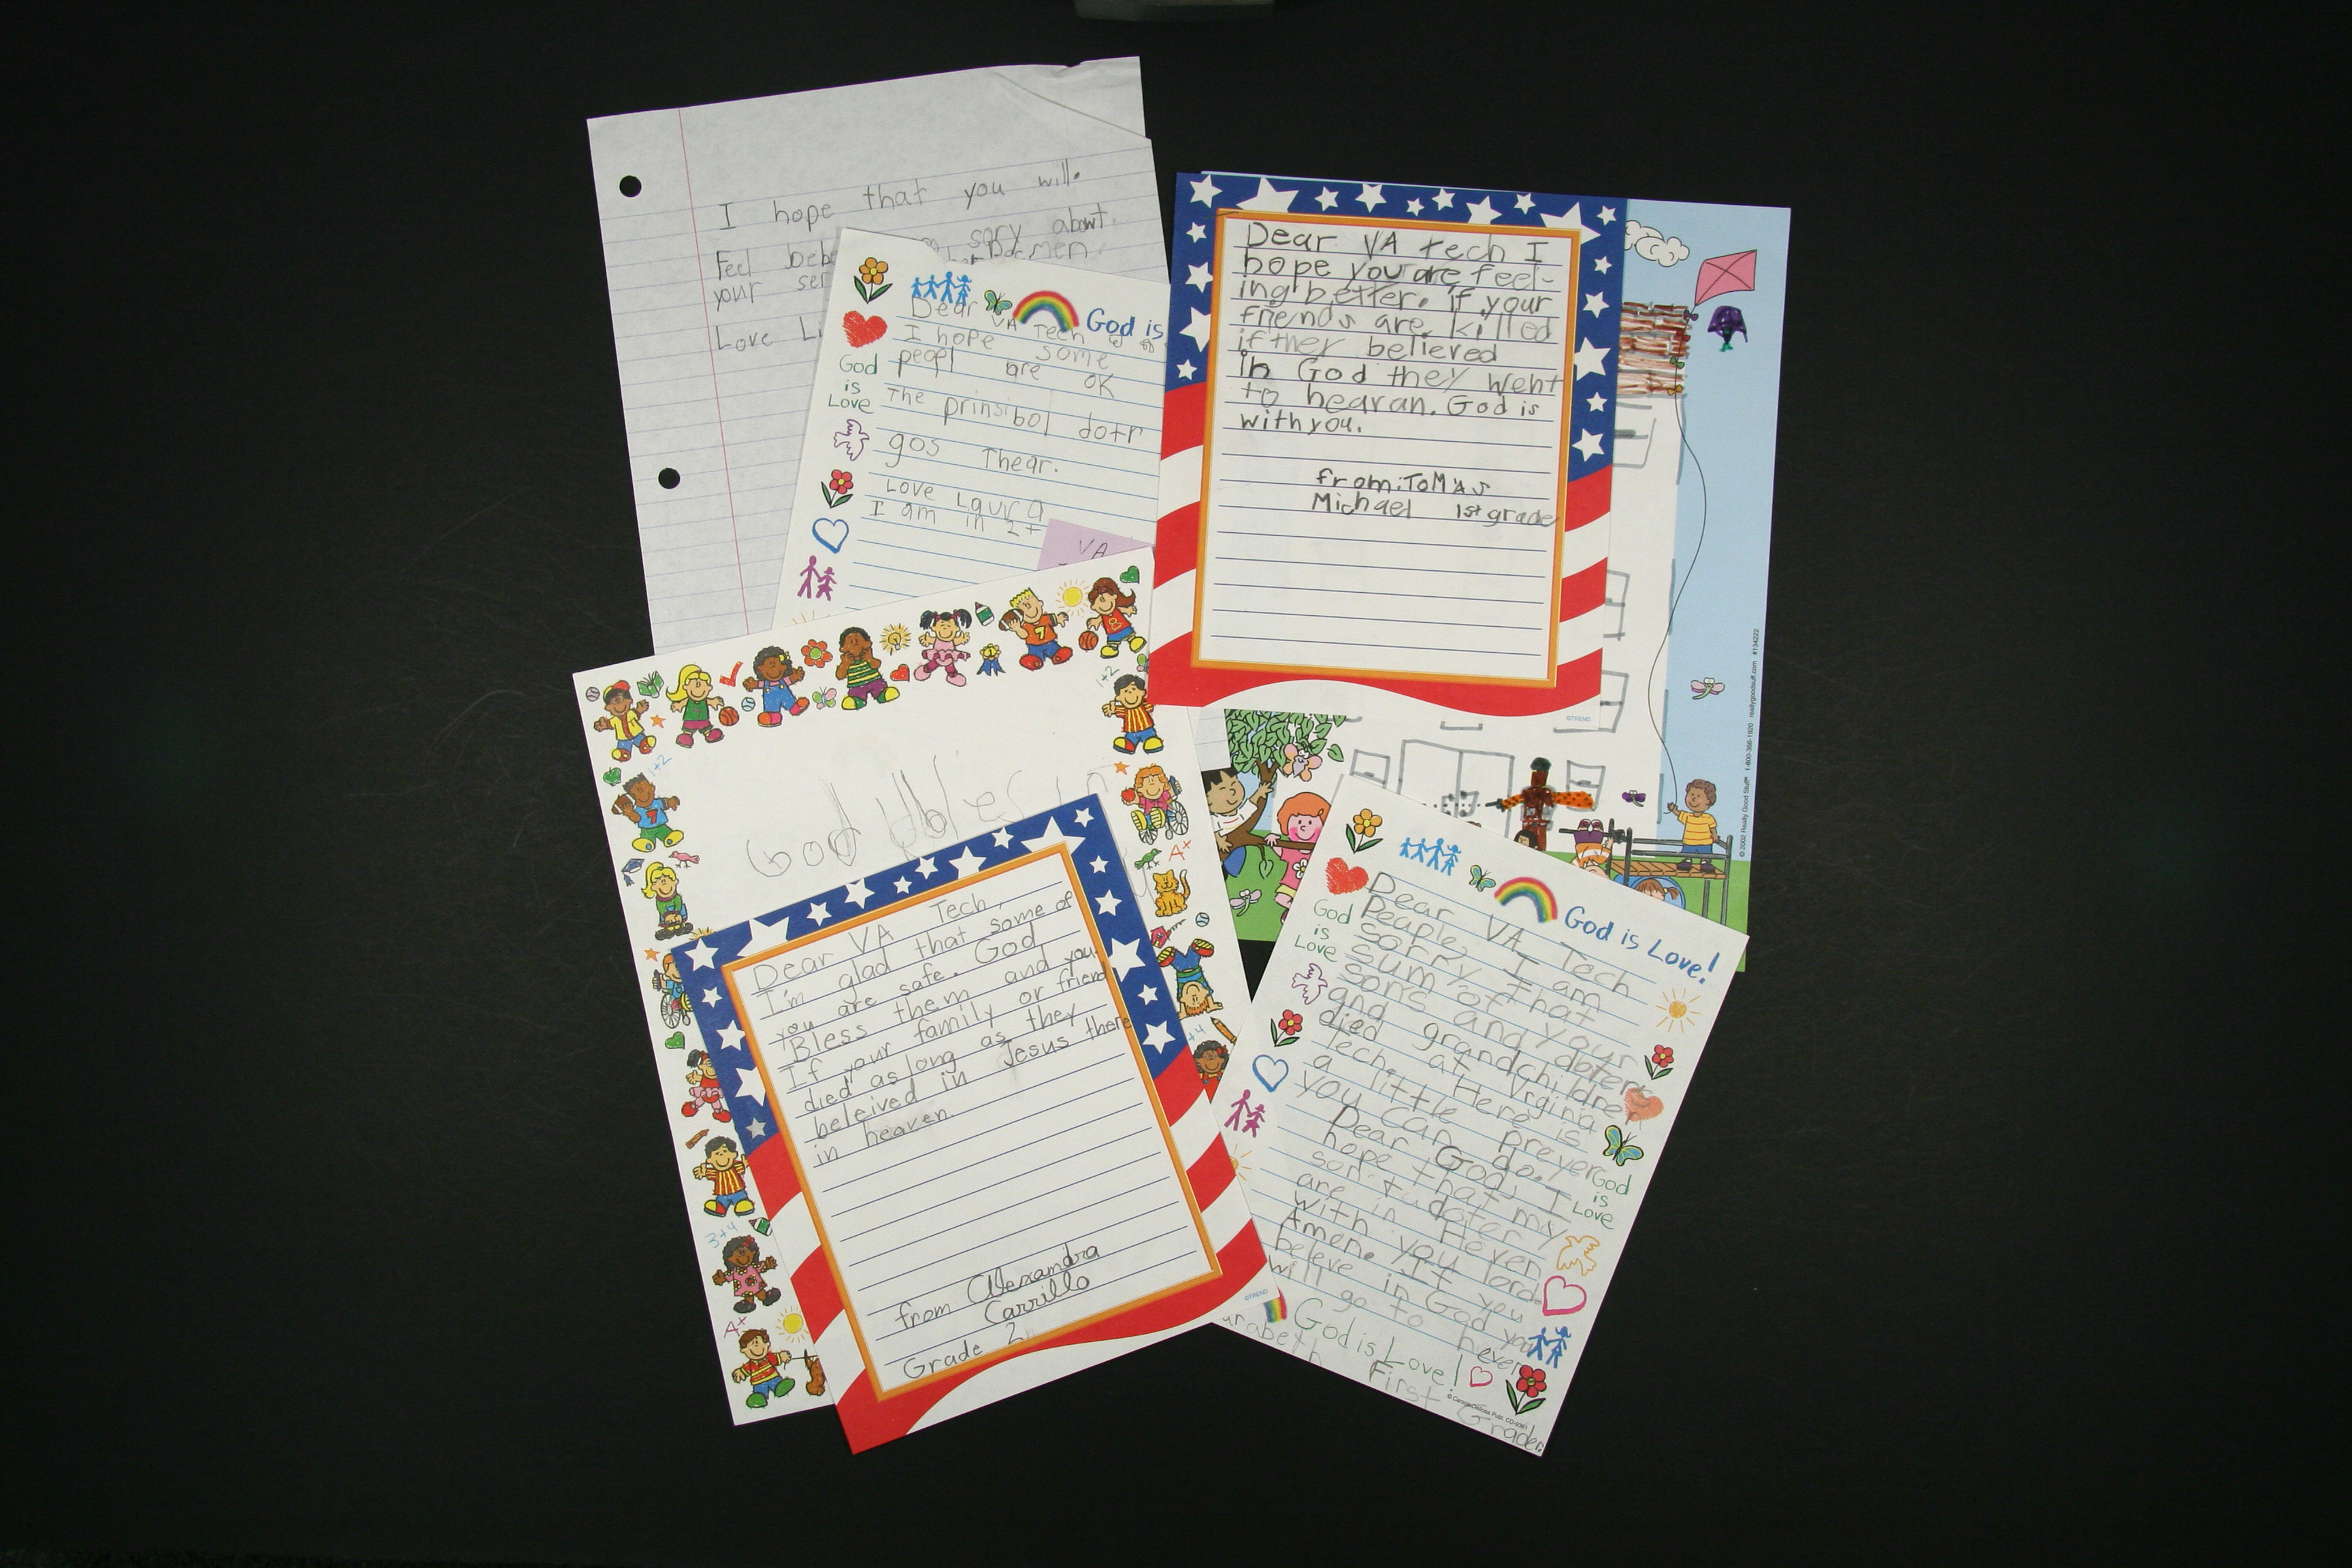 I hope that you will
Feel bebe sory about
your ser
Love Li
Dear VA Tech
God is
I hope some
peopl are OK
The prinsibol dotr
gos Thear.
Love Laura
I am in 2+
God
is
Love
VA
Dear VA tech I
hope you are feel-
ing better. if your
friends are killed
if they believed
in God they went
to heavan. God is
with you.
from: TOMAS
Michael 1st grade
©TREND
© 2002 Really Good Stuff® 1-800-366-1920 reallygoodstuff.com #134222
1+2
1+2
7
7
8
God bles
A+
3+4
A+
Dear VA Tech,
I'm glad that some of
you are safe. God
Bless them and you.
If your family or friend
died as long as they
beleived in Jesus there
in heaven.
from Alexandra
Carrillo
Grade 2
©TREND
God is Love!
God
is
Love
Dear VA Tech
Peaple, I am
sorry that
sum of your
sons and doters
and grandchildren
died at Vrginia
Tech. Here is
a little preyer
you can do.
Dear God, I
hope that my
son & doter
are in Heven
with you lord.
Amen. If you
beleve in God you
will go to heven
God
is
Love
God is Love!
First Grader